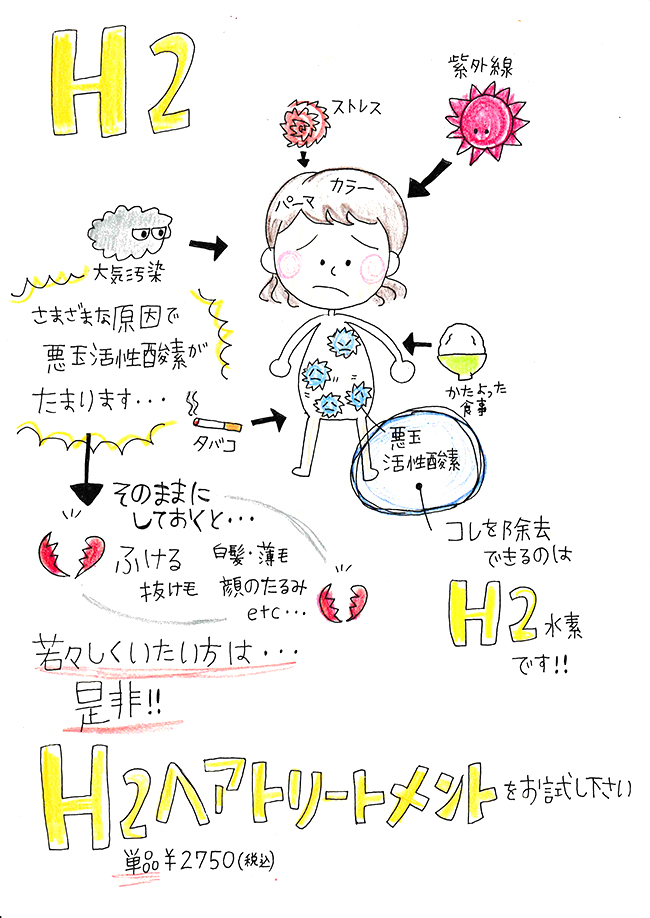 H2
紫外線
ストレス
カラー
パーマ
大気汚染
さまざまな原因で
悪玉活性酸素が
たまります・・・
タバコ
かたよった
食事
悪玉
活性酸素
そのままに
しておくと・・・
ふける
白髪・薄毛
抜け毛
顔のたるみ
etc・・・
コレを除去
できるのは
H2水素
です!!
若々しくいたい方は・・・
是非!!
H2ヘアトリートメントをお試し下さい
単品¥2750(税込)